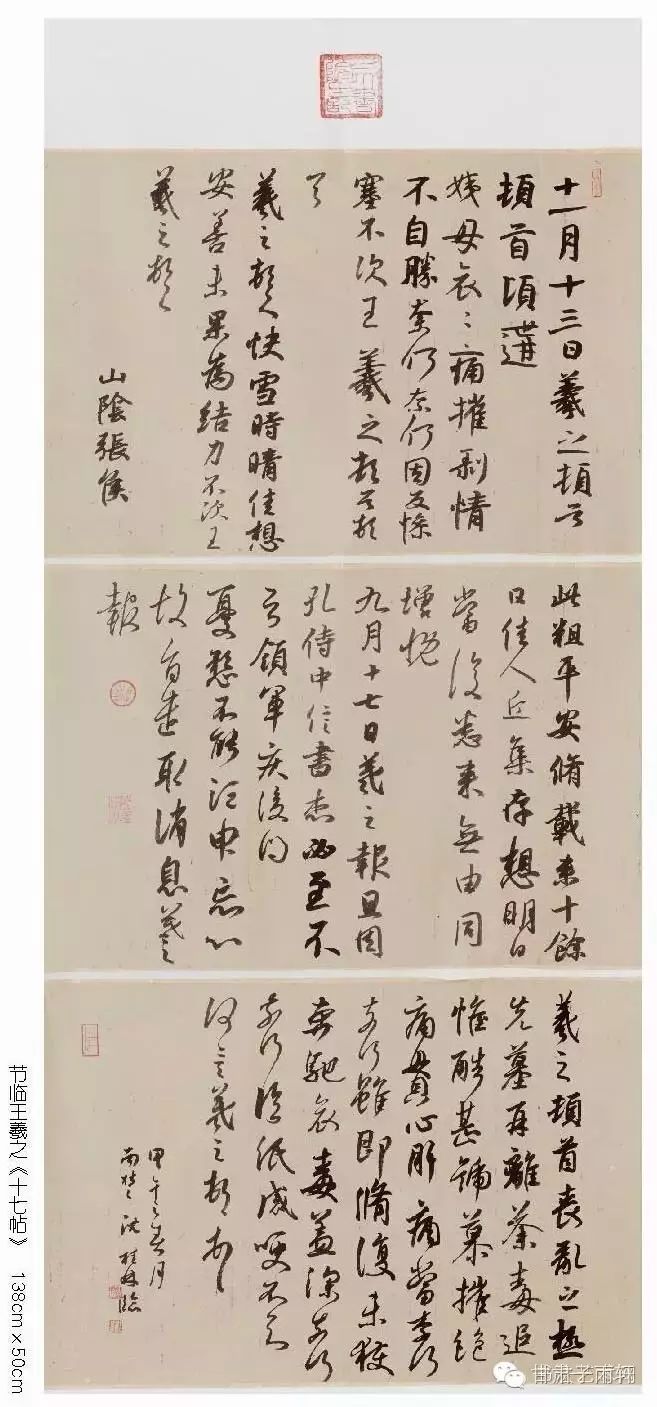 十一月十三日羲之頓首
頓首頃遘
姨母哀〻痛摧剥情
不自勝奈何奈何因反慘
塞不次王羲之頓首頓
首
羲之頓首快雪時晴佳想
安善未果為結力不次王
羲之頓首
山陰張侯
此粗平安脩載来十餘
日佳人近集存想明日
當復悉来無由同
增慨
九月十七日羲之報且因
孔侍中信書想必至不
知領軍疾後問
憂懸不能須臾忘心
故旨遣取消息羲之
報
羲之頓首喪亂之極
先墓再離荼毒追
惟酷甚號慕摧絕
痛貫心肝痛當奈何
奈何雖即脩復未獲
奔馳哀毒益深奈何
奈何臨紙感哽不知
何言羲之頓首〻〻
甲午之春月
沈 臨
节临王羲之《十七帖》 138cm×50cm